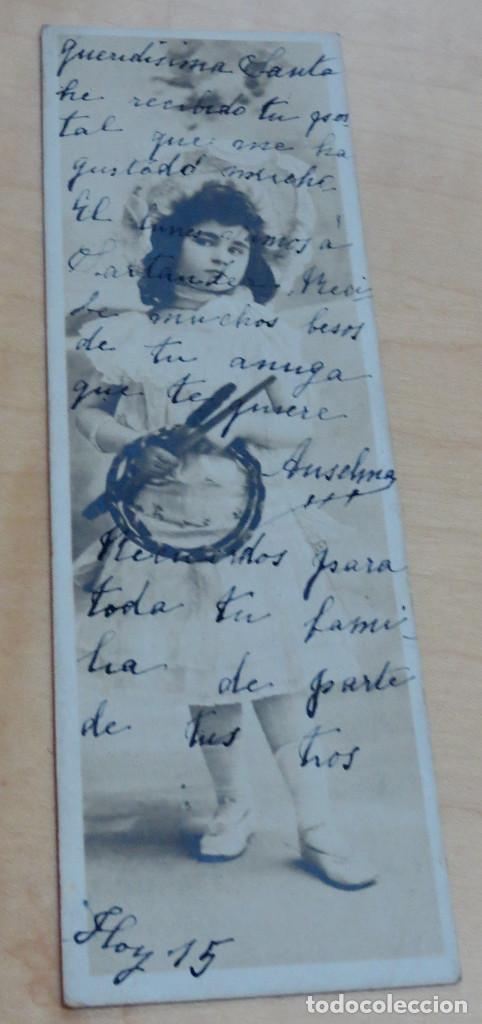 queridisima Santa
he recibido tu pos-
tal que me ha
gustadó mucho.
El lunes vamos á
Santander. Reci
be muchos besos
de tu amiga
que te quiere
Anselma
Recuerdos para
toda tu fami-
lia de parte
de tus tios
Hoy 15
todocoleccion